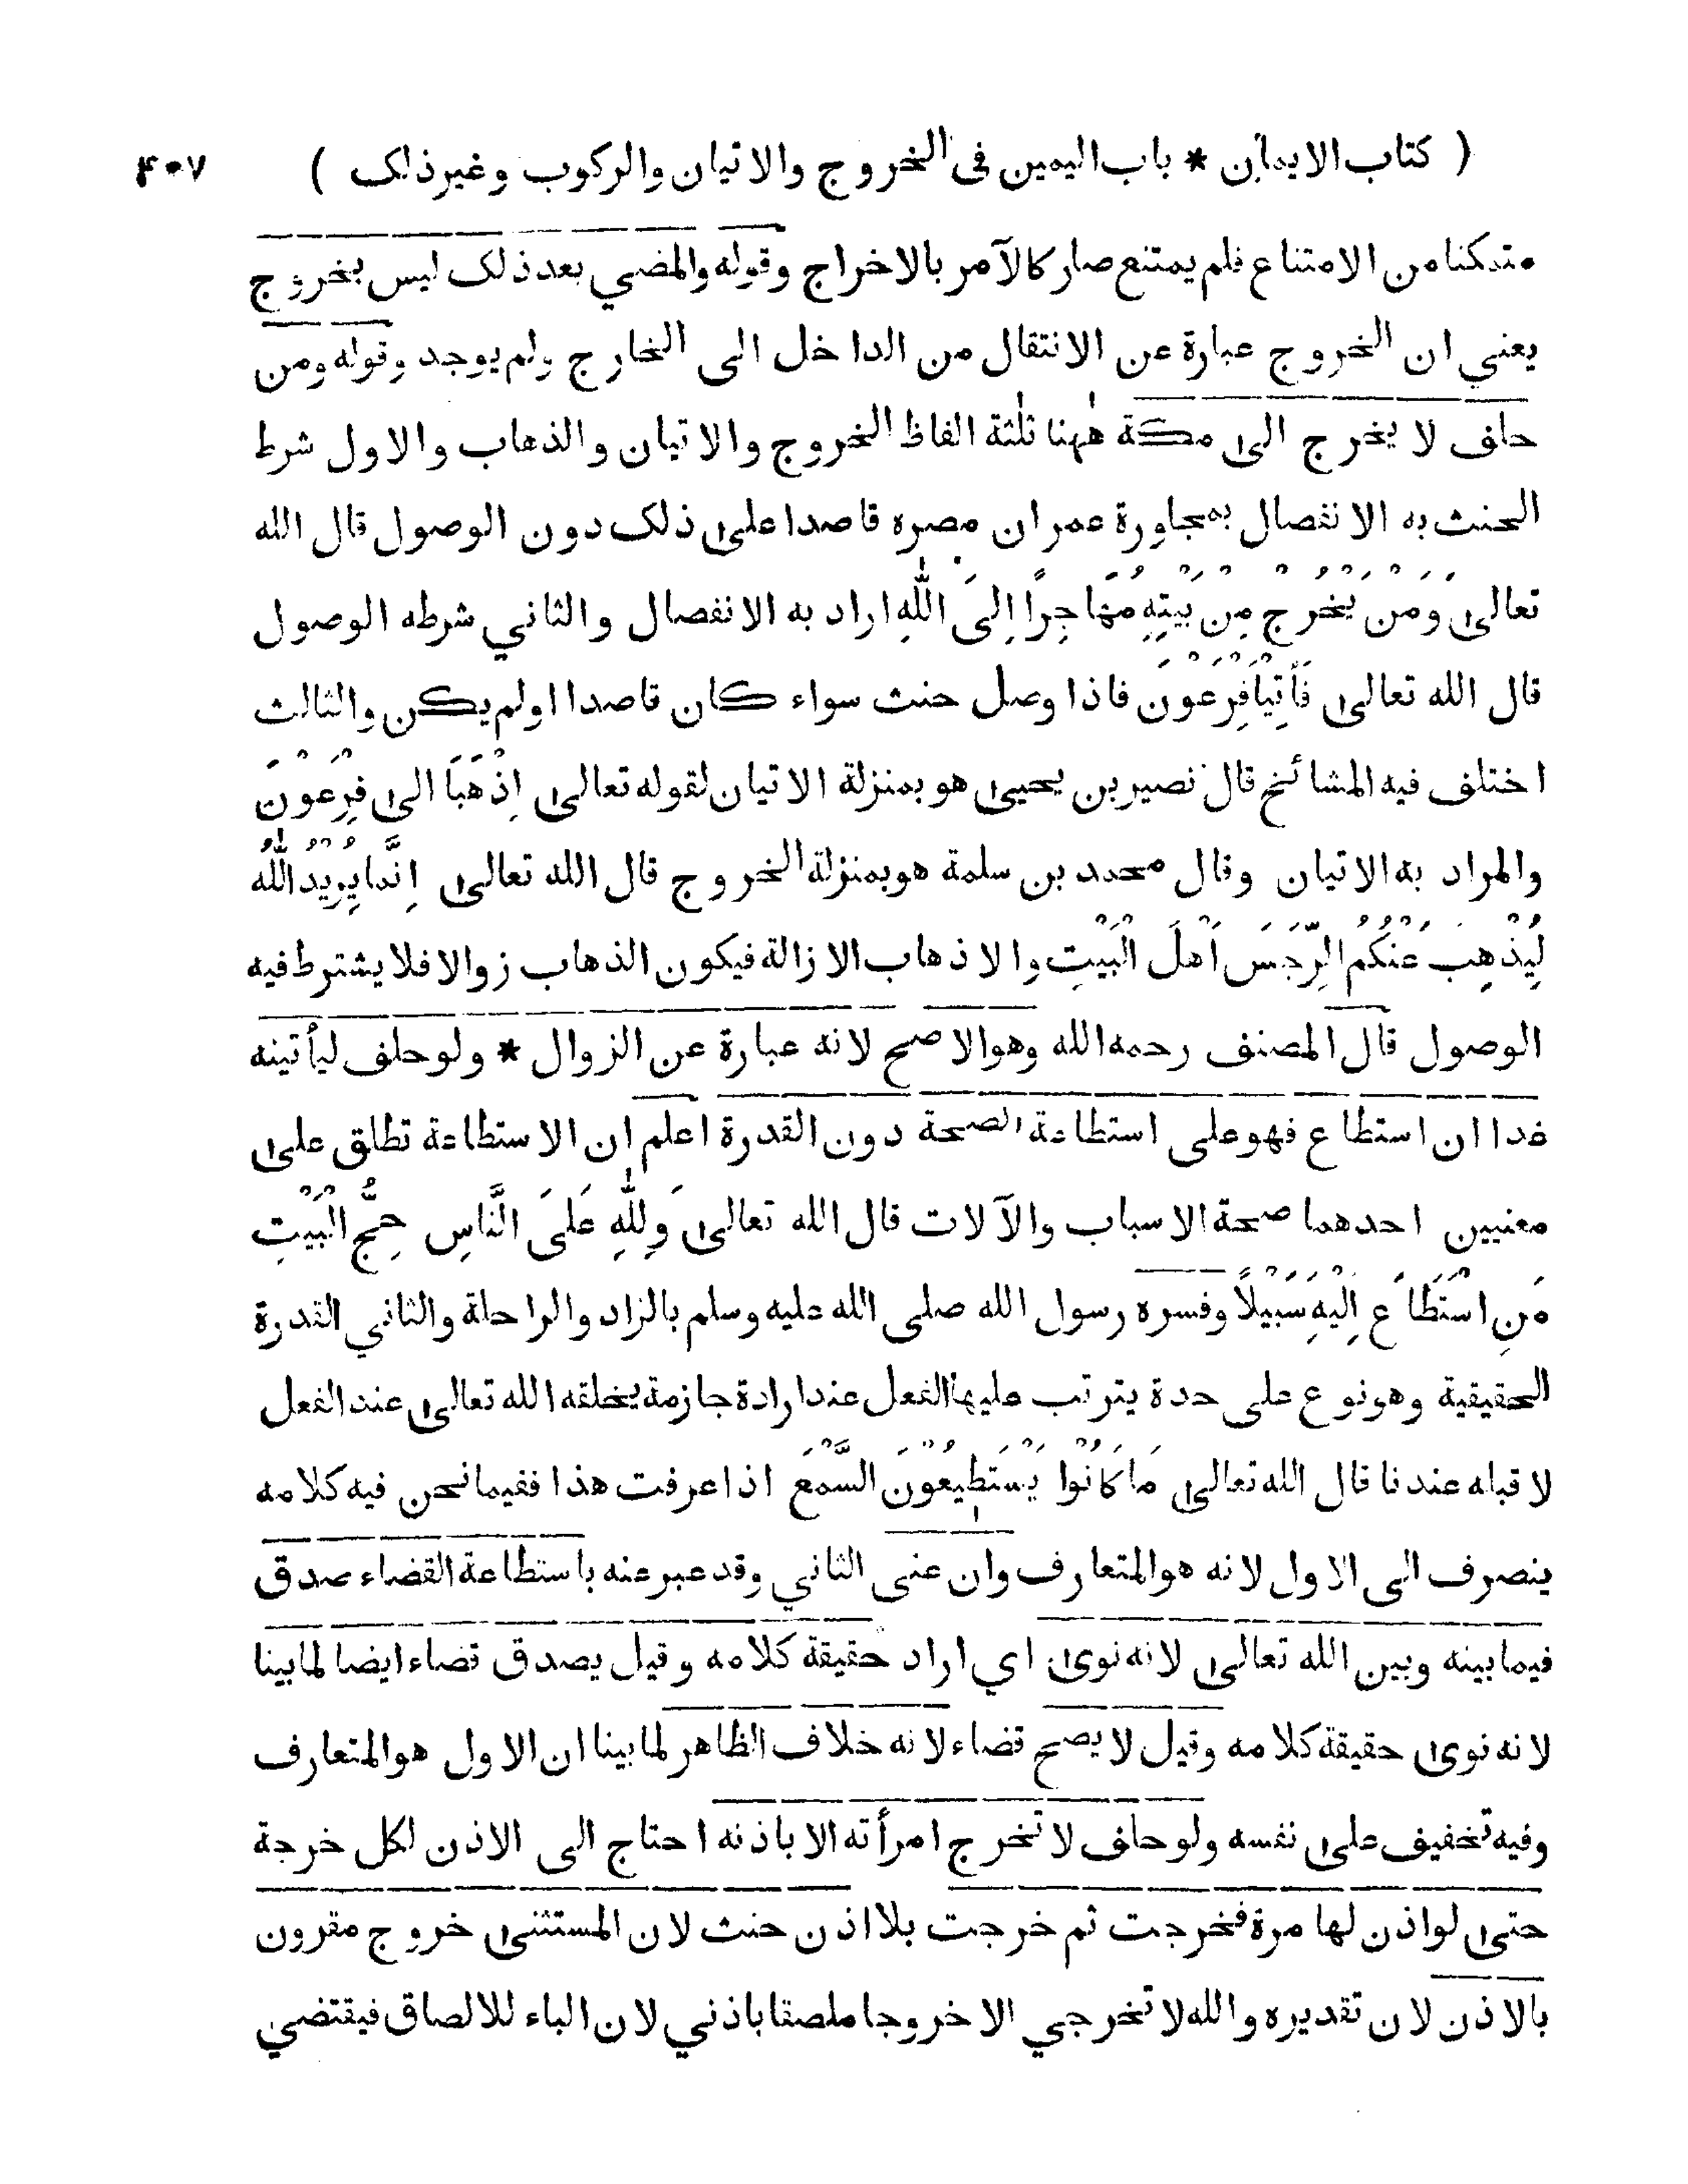 ( كتاب الايمان * باب اليمين في الخروج والاتيان والركوب وغيرذلك ) ۴۰۷
متمكنا من الامتناع فلم يمتنع صار كالآمر بالاخراج وقوله والمضي بعد ذلك ليس بخروج
يعني ان الخروج عبارة عن الانتقال من الداخل الى الخارج ولم يوجد وقوله ومن
حلف لا يخرج الى مكة هٰهنا ثلٰثة الفاظ الخروج والاتيان والذهاب والاول شرط
الحنث به الانفصال بمجاورة عمران مصره قاصدا على ذلك دون الوصول قال الله
تعالى وَمَنْ يَخْرُجْ مِنْ بَيْتِهِ مُهَاجِرًا اِلَى اللّٰهِ اراد به الانفصال والثاني شرطه الوصول
قال الله تعالى فَأْتِيَا فِرْعَوْنَ فاذا وصل حنث سواء كان قاصدا اولم يكن والثالث
اختلف فيه المشائخ قال نصير بن يحيى هو بمنزلة الاتيان لقوله تعالى اِذْهَبَا الى فِرْعَوْنَ
والمراد به الاتيان وقال محمد بن سلمة هو بمنزلة الخروج قال الله تعالى اِنَّمَا يُرِيْدُ اللّٰهُ
لِيُذْهِبَ عَنْكُمُ الرِّجْسَ اَهْلَ الْبَيْتِ والاذهاب الازالة فيكون الذهاب زوالا فلا يشترط فيه
الوصول قال المصنف رحمه الله وهو الاصح لانه عبارة عن الزوال * ولو حلف ليأتينه
غدا ان استطاع فهو على استطاعة الصحة دون القدرة اعلم ان الاستطاعة تطلق على
معنيين احدهما صحة الاسباب والآلات قال الله تعالى وَلِلّٰهِ عَلَى النَّاسِ حِجُّ الْبَيْتِ
مَنِ اسْتَطَاعَ اِلَيْهِ سَبِيْلًا وفسره رسول الله صلى الله عليه وسلم بالزاد والراحلة والثاني القدرة
الحقيقية وهو نوع على حدة يترتب عليها الفعل عند ارادة جازمة يخلقه الله تعالى عند الفعل
لا قبله عندنا قال الله تعالى مَا كَانُوْا يَسْتَطِيْعُوْنَ السَّمْعَ اذا عرفت هذا ففيما نحن فيه كلامه
ينصرف الى الاول لانه هو المتعارف وان عنى الثاني وقد عبر عنه باستطاعة القضاء صدق
فيما بينه وبين الله تعالى لانه نوى اي اراد حقيقة كلامه وقيل يصدق قضاء ايضا لما بينا
لانه نوى حقيقة كلامه وقيل لا يصح قضاء لانه خلاف الظاهر لما بينا ان الاول هو المتعارف
وفيه تخفيف على نفسه ولو حلف لا تخرج امرأته الا باذنه احتاج الى الاذن لكل خرجة
حتى لو اذن لها مرة فخرجت ثم خرجت بلا اذن حنث لان المستثنى خروج مقرون
بالاذن لان تقديره والله لا تخرجي الا خروجا ملصقا باذني لان الباء للالصاق فيقتضي